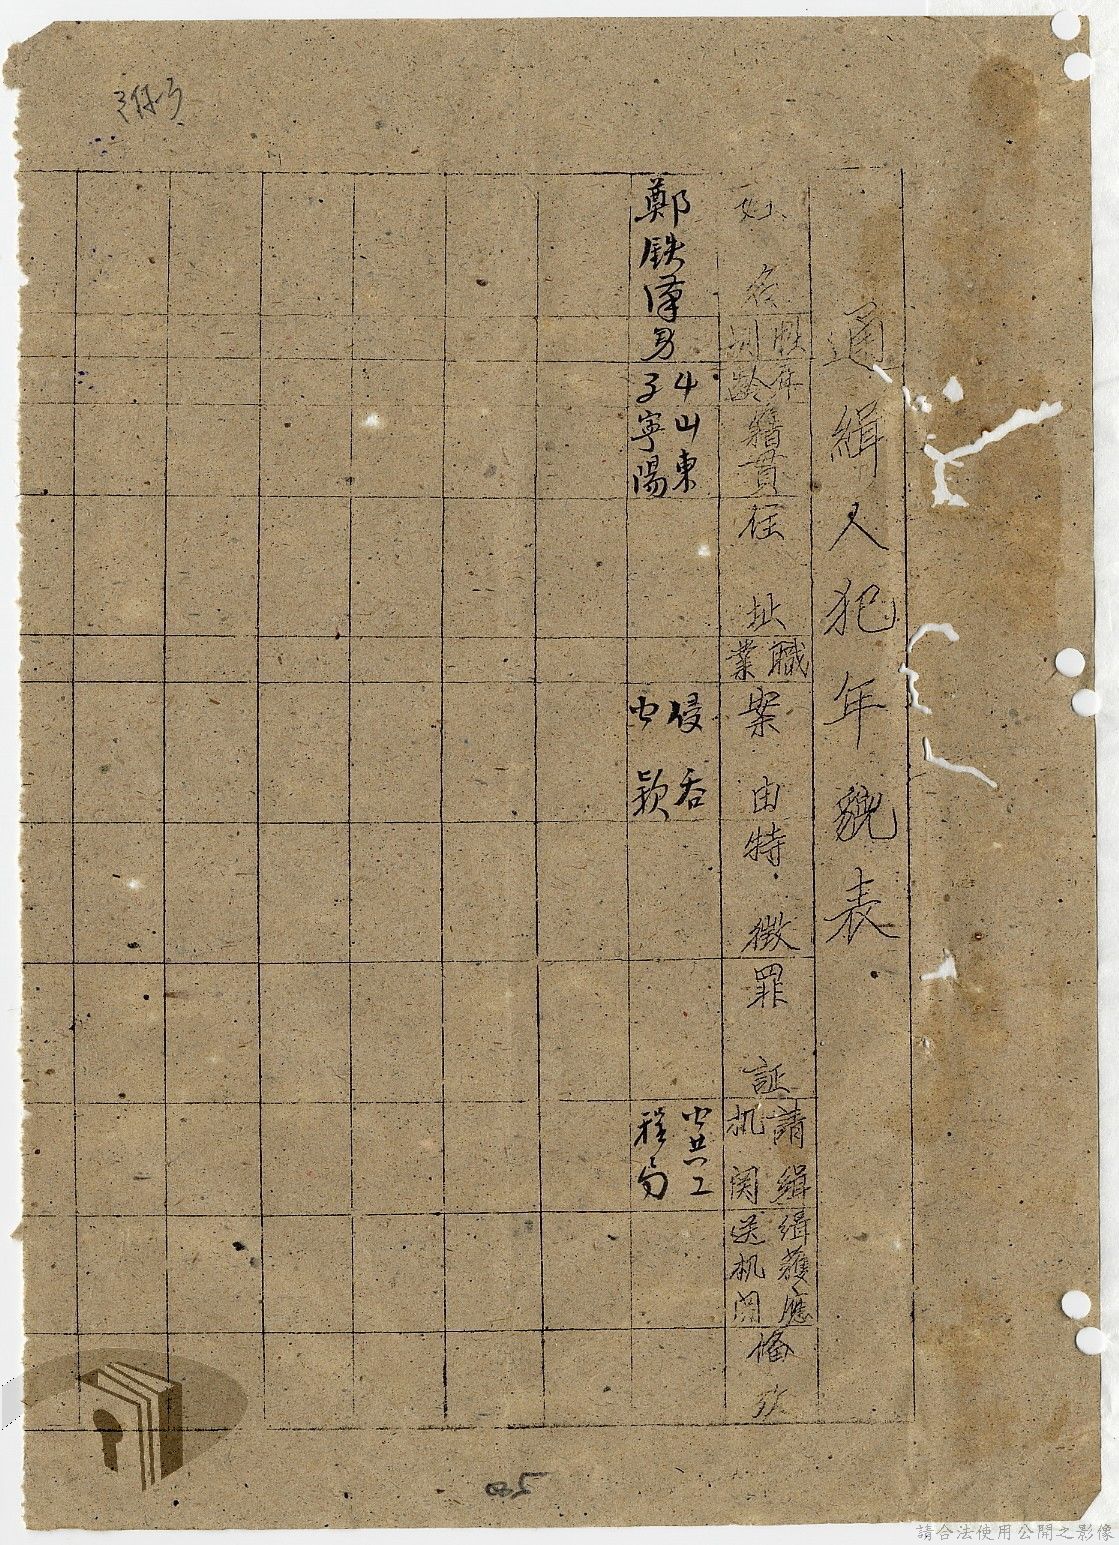 通緝人犯年貌表
姓名
性別
年齡
籍貫
住址
職業
案由
特徵
罪証
請緝机関
緝獲應送机関
備攷
鄭鉄漢
男
山東
寧陽
侵吞
公款
公共工
程局
請合法使用公開之影像